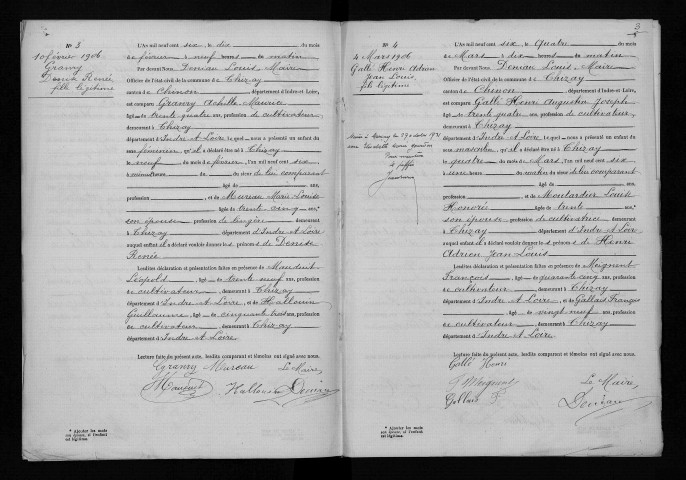 N° 3
10 février 1906
Granry
Denise Renée
fille légitime
L'An mil neuf cent six, le dix du mois
de février à neuf heures du matin
Par devant Nous, Deniau Louis, Maire
Officier de l'état civil de la commune de Thizay
canton de Chinon, département d'Indre-et-Loire,
est comparu Granry Achille Maurice
âgé de trente quatre ans, profession de cultivateur,
demeurant à Thizay
département d'Indre et Loire, lequel nous a présenté un enfant du sexe
féminin qu'il a déclaré être né à Thizay
le neuf du mois de février, l'an mil neuf cent six
à heures du de lui comparant
âgé de ans,
profession, et de Mureau Marie Louise
âgée de trente cinq ans,*
son épouse, profession de lingère demeurant
à Thizay département d'Indre et Loire
auquel enfant il a déclaré vouloir donner les prénoms de Denise
Renée
Lesdites déclaration et présentation faites en présence de Mauduit
Léopold, âgé de trente neuf ans, profession
de cultivateur, demeurant à Thizay
département d'Indre et Loire et de Hallouin
Guillaume, âgé de cinquante trois ans, profession
de cultivateur demeurant à Thizay
département d'Indre et Loire
Lecture faite du présent acte, lesdits comparant et témoins ont signé avec nous.
Granry Mureau Le Maire,
Mauduit Hallouin Deniau
* Ajouter les mots
son épouse, si l'enfant
est légitime.
3
N° 4
4 Mars 1906
Gallé Henri Adrien
Jean Louis,
fils légitime
L'An mil neuf cent six, le quatre du mois
de Mars à dix heures du matin
Par devant Nous, Deniau Louis, Maire
Officier de l'état civil de la commune de Thizay
canton de Chinon, département d'Indre-et-Loire,
est comparu Gallé Henri Augustin Joseph
âgé de trente quatre ans, profession de cultivateur,
demeurant à Thizay
département d'Indre et Loire, lequel nous a présenté un enfant du sexe
masculin qu'il a déclaré être né à Thizay
le quatre du mois de Mars, l'an mil neuf cent six
à une heure du matin de lui comparant
âgé de ans,
profession, et de Moutardier Louise
Honorée âgée de trente ans,*
son épouse profession de cultivatrice demeurant
à Thizay département d'Indre et Loire
auquel enfant il a déclaré vouloir donner les prénoms de Henri
Adrien Jean Louis
Lesdites déclaration et présentation faites en présence de Meignant
François, âgé de quarante cinq ans, profession
de cultivateur, demeurant à Thizay
département d'Indre et Loire, et de Gallais François
âgé de vingt neuf ans, profession
de cultivateur demeurant à Thizay
département d'Indre et Loire
Lecture faite du présent acte, lesdits comparant et témoins ont signé avec nous.
Gallé Henri
Meignant Le Maire,
Gallais F Deniau
* Ajouter les mots
son épouse, si l'enfant
est légitime.